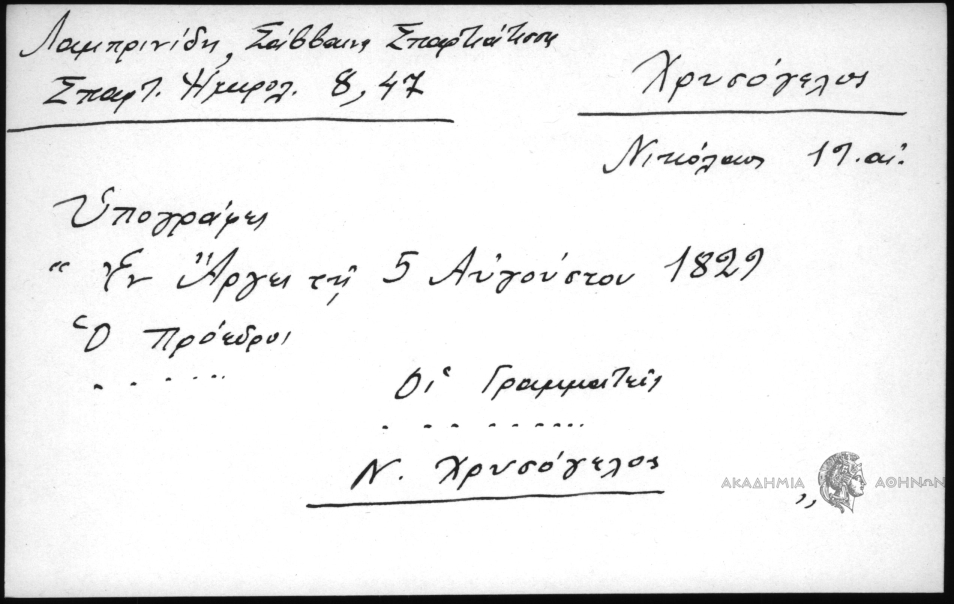 Λαμπρινίδη, Σάββαινα Σπαρτιάτισσα
Σπαρτ. Ημερολ. 8, 47
Χρυσόγελος
Νικόλαος 19. αἰ.
Ὑπογράφει
“ Ἐν Ἄργει τῇ 5 Αὐγούστου 1829
Ὁ Πρόεδρος
. . . . . .
Οἱ Γραμματεῖς
. . . . . . . . .
Ν. Χρυσόγελος
”
ΑΚΑΔΗΜΙΑ ΑΘΗΝΩΝ